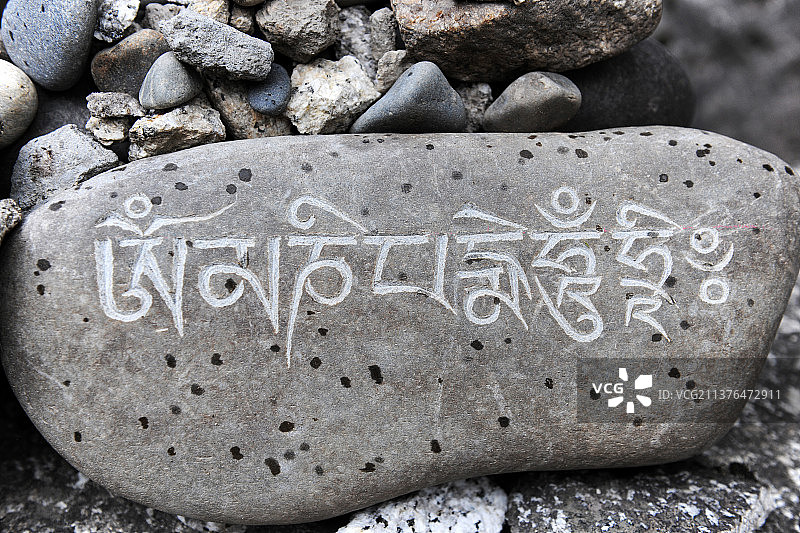 ཨོཾ མ ཎི པ དྨེ ཧཱུྃ ཧྲིཿ
VCG ID: VCG211376472911